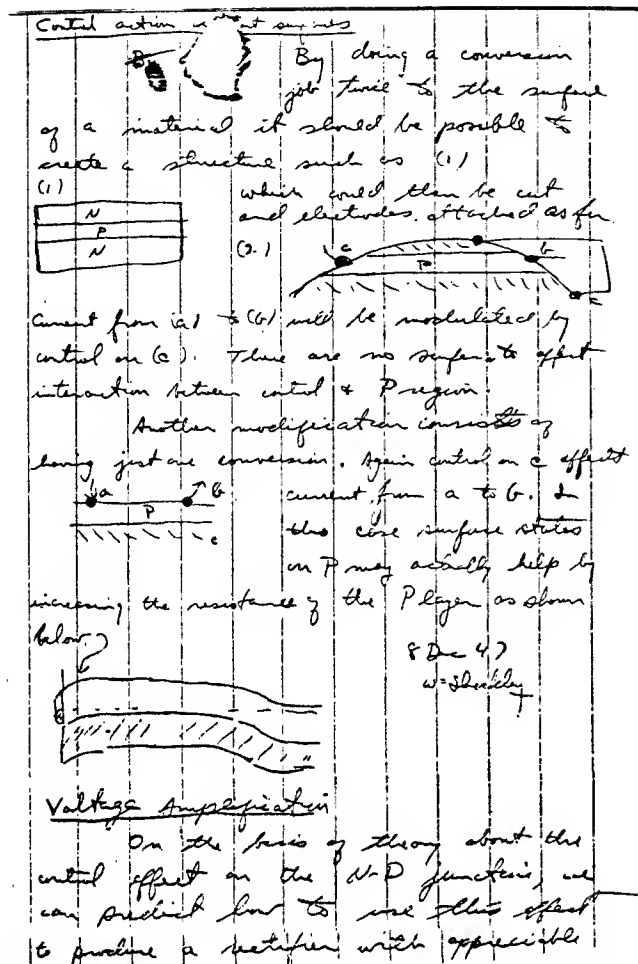 Control action without surfaces
B
By doing a conversion
job twice to the surface
of a material it should be possible to
create a structure such as (1)
(1)
which could then be cut
and electrodes attached as for
N
P
N
(2.)
a
b
P
c
Current from (a) to (b) will be modulated by
control on (c). There are no surface state effect
interaction between control & P region.
Another modification consists of
having just one conversion. Again control on c affect
a
b
P
c
current from a to b. In
this case surface states
on P may actually help by
increasing the resistance of the P layer as shown
below.
8 Dec 47
W=Shockley
Voltage Amplification
On the basis of theory about the
control effect on the N-P junction, we
can predict how to use this effect
to produce a rectifier with appreciable